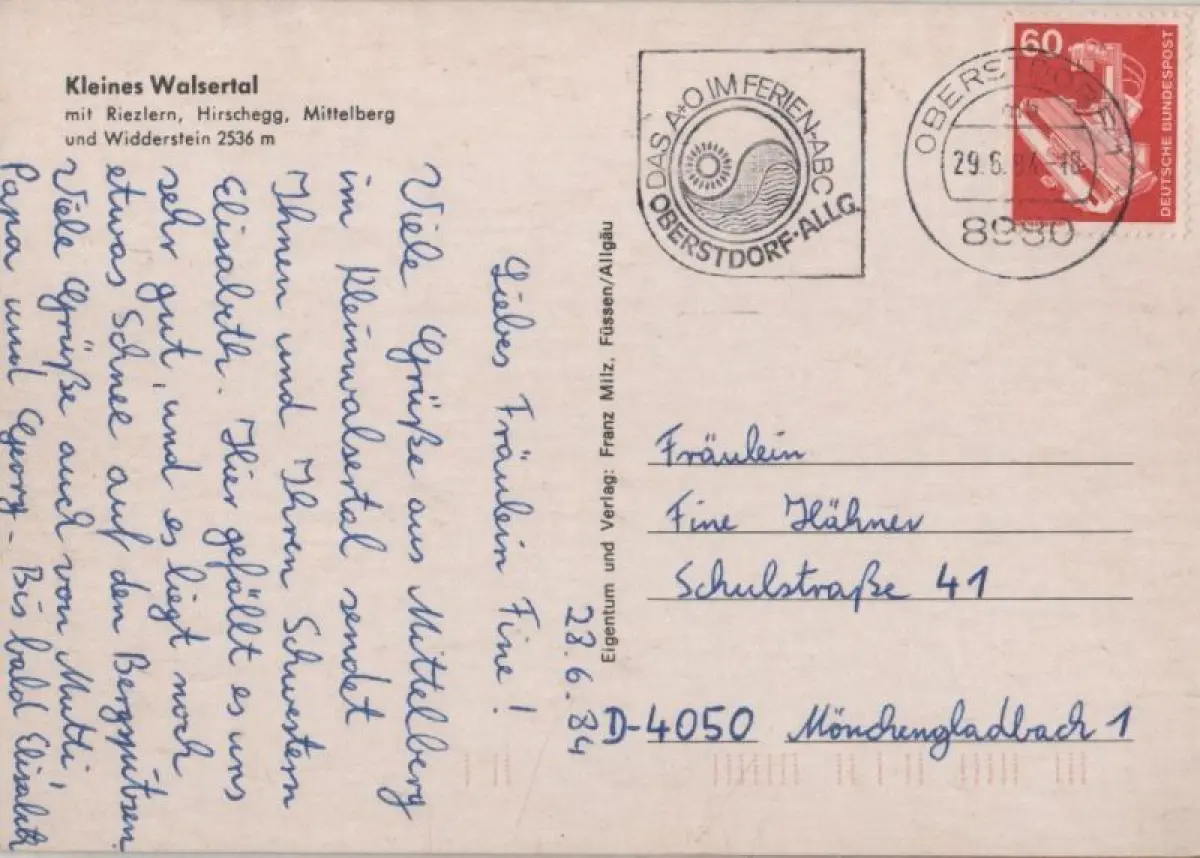 Kleines Walsertal
mit Riezlern, Hirschegg, Mittelberg
und Widderstein 2536 m
28.6.84
Liebes Fräulein Fine!
Viele Grüße aus Mittelberg
im Kleinwalsertal sendet
Ihnen und Ihren Schwestern
Elisabeth. Hier gefällt es uns
sehr gut, und es liegt noch
etwas Schnee auf den Bergspitzen.
Viele Grüße auch von Mutti,
Papa und Georg - Bis bald Elisabeth
Eigentum und Verlag: Franz Milz, Füssen/Allgäu
DAS A+O IM FERIEN-ABC
OBERSTDORF-ALLG.
OBERSTDORF 1
29.6.84-18
8980
60
DEUTSCHE BUNDESPOST
Fräulein
Fine Hähner
Schulstraße 41
D-4050 Mönchengladbach 1